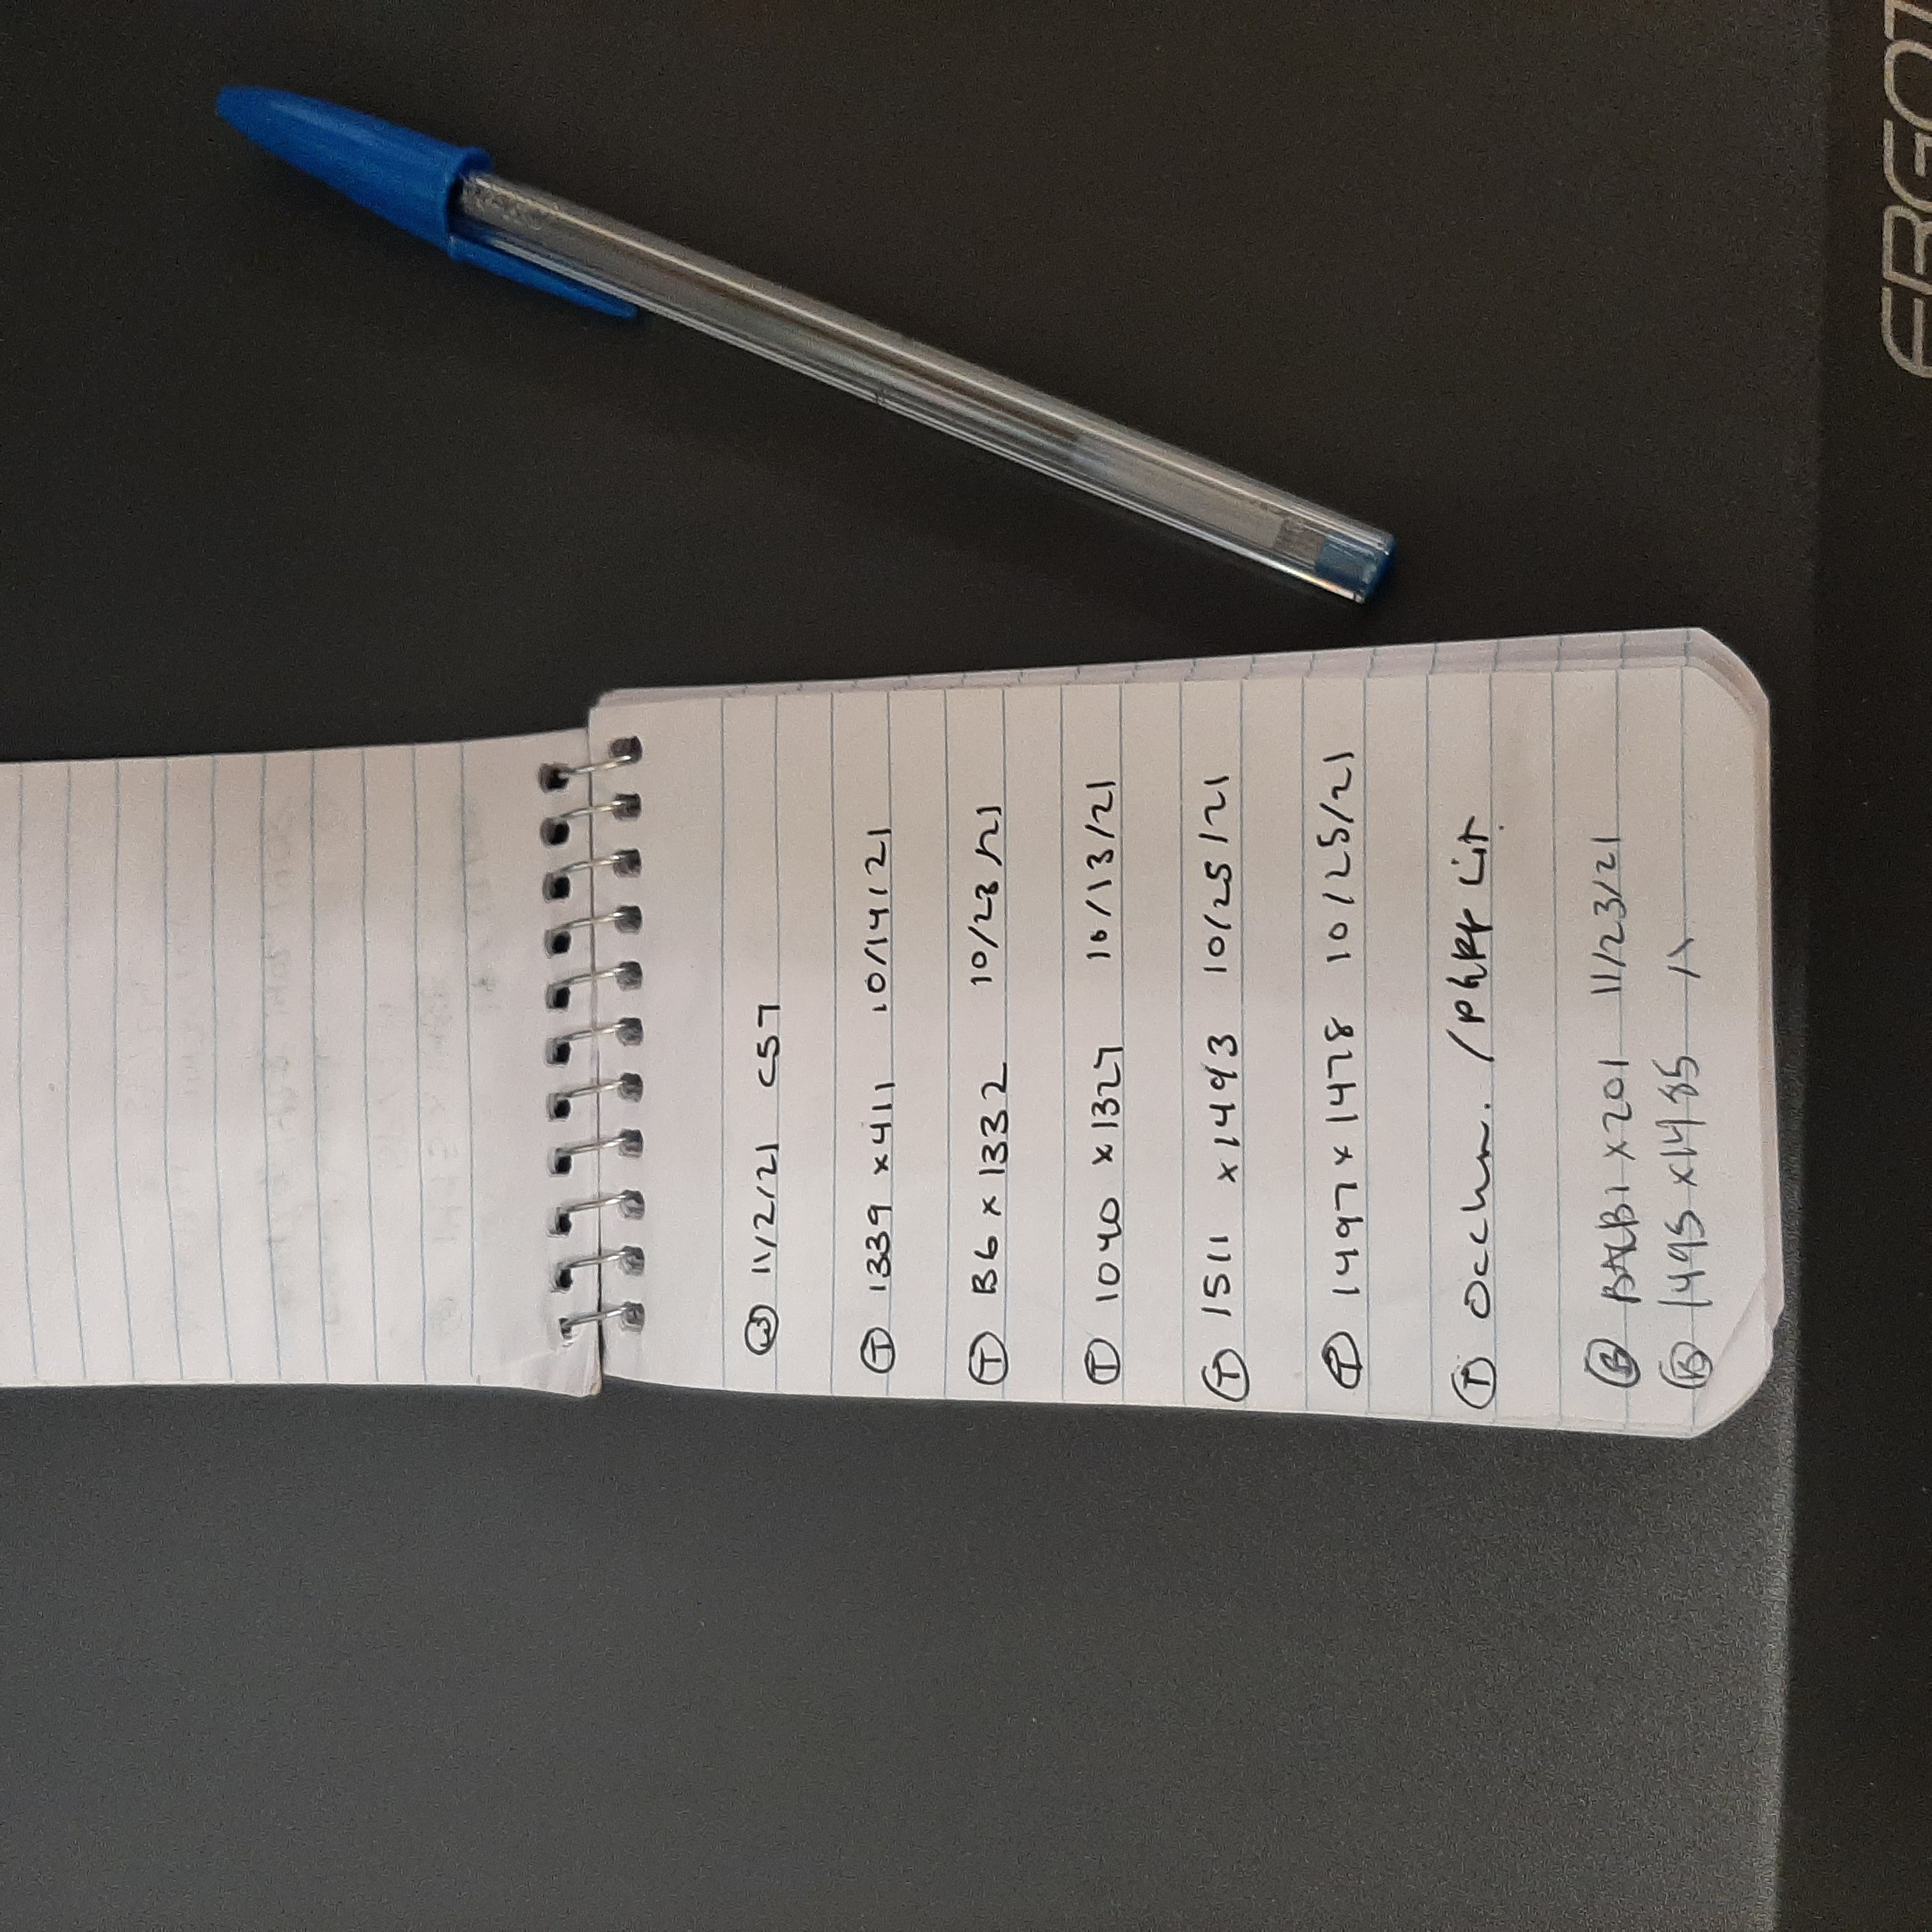 W 11/2/21 C57
T 1339 x 411 10/14/21
T B6 x 1332 10/23/21
T 1040 x 1327 10/13/21
T 1511 x 1493 10/25/21
T 1497 x 1478 10/25/21
T
B BALB1 x 201 11/23/21
B 1495 x 1485 11
ERGOT